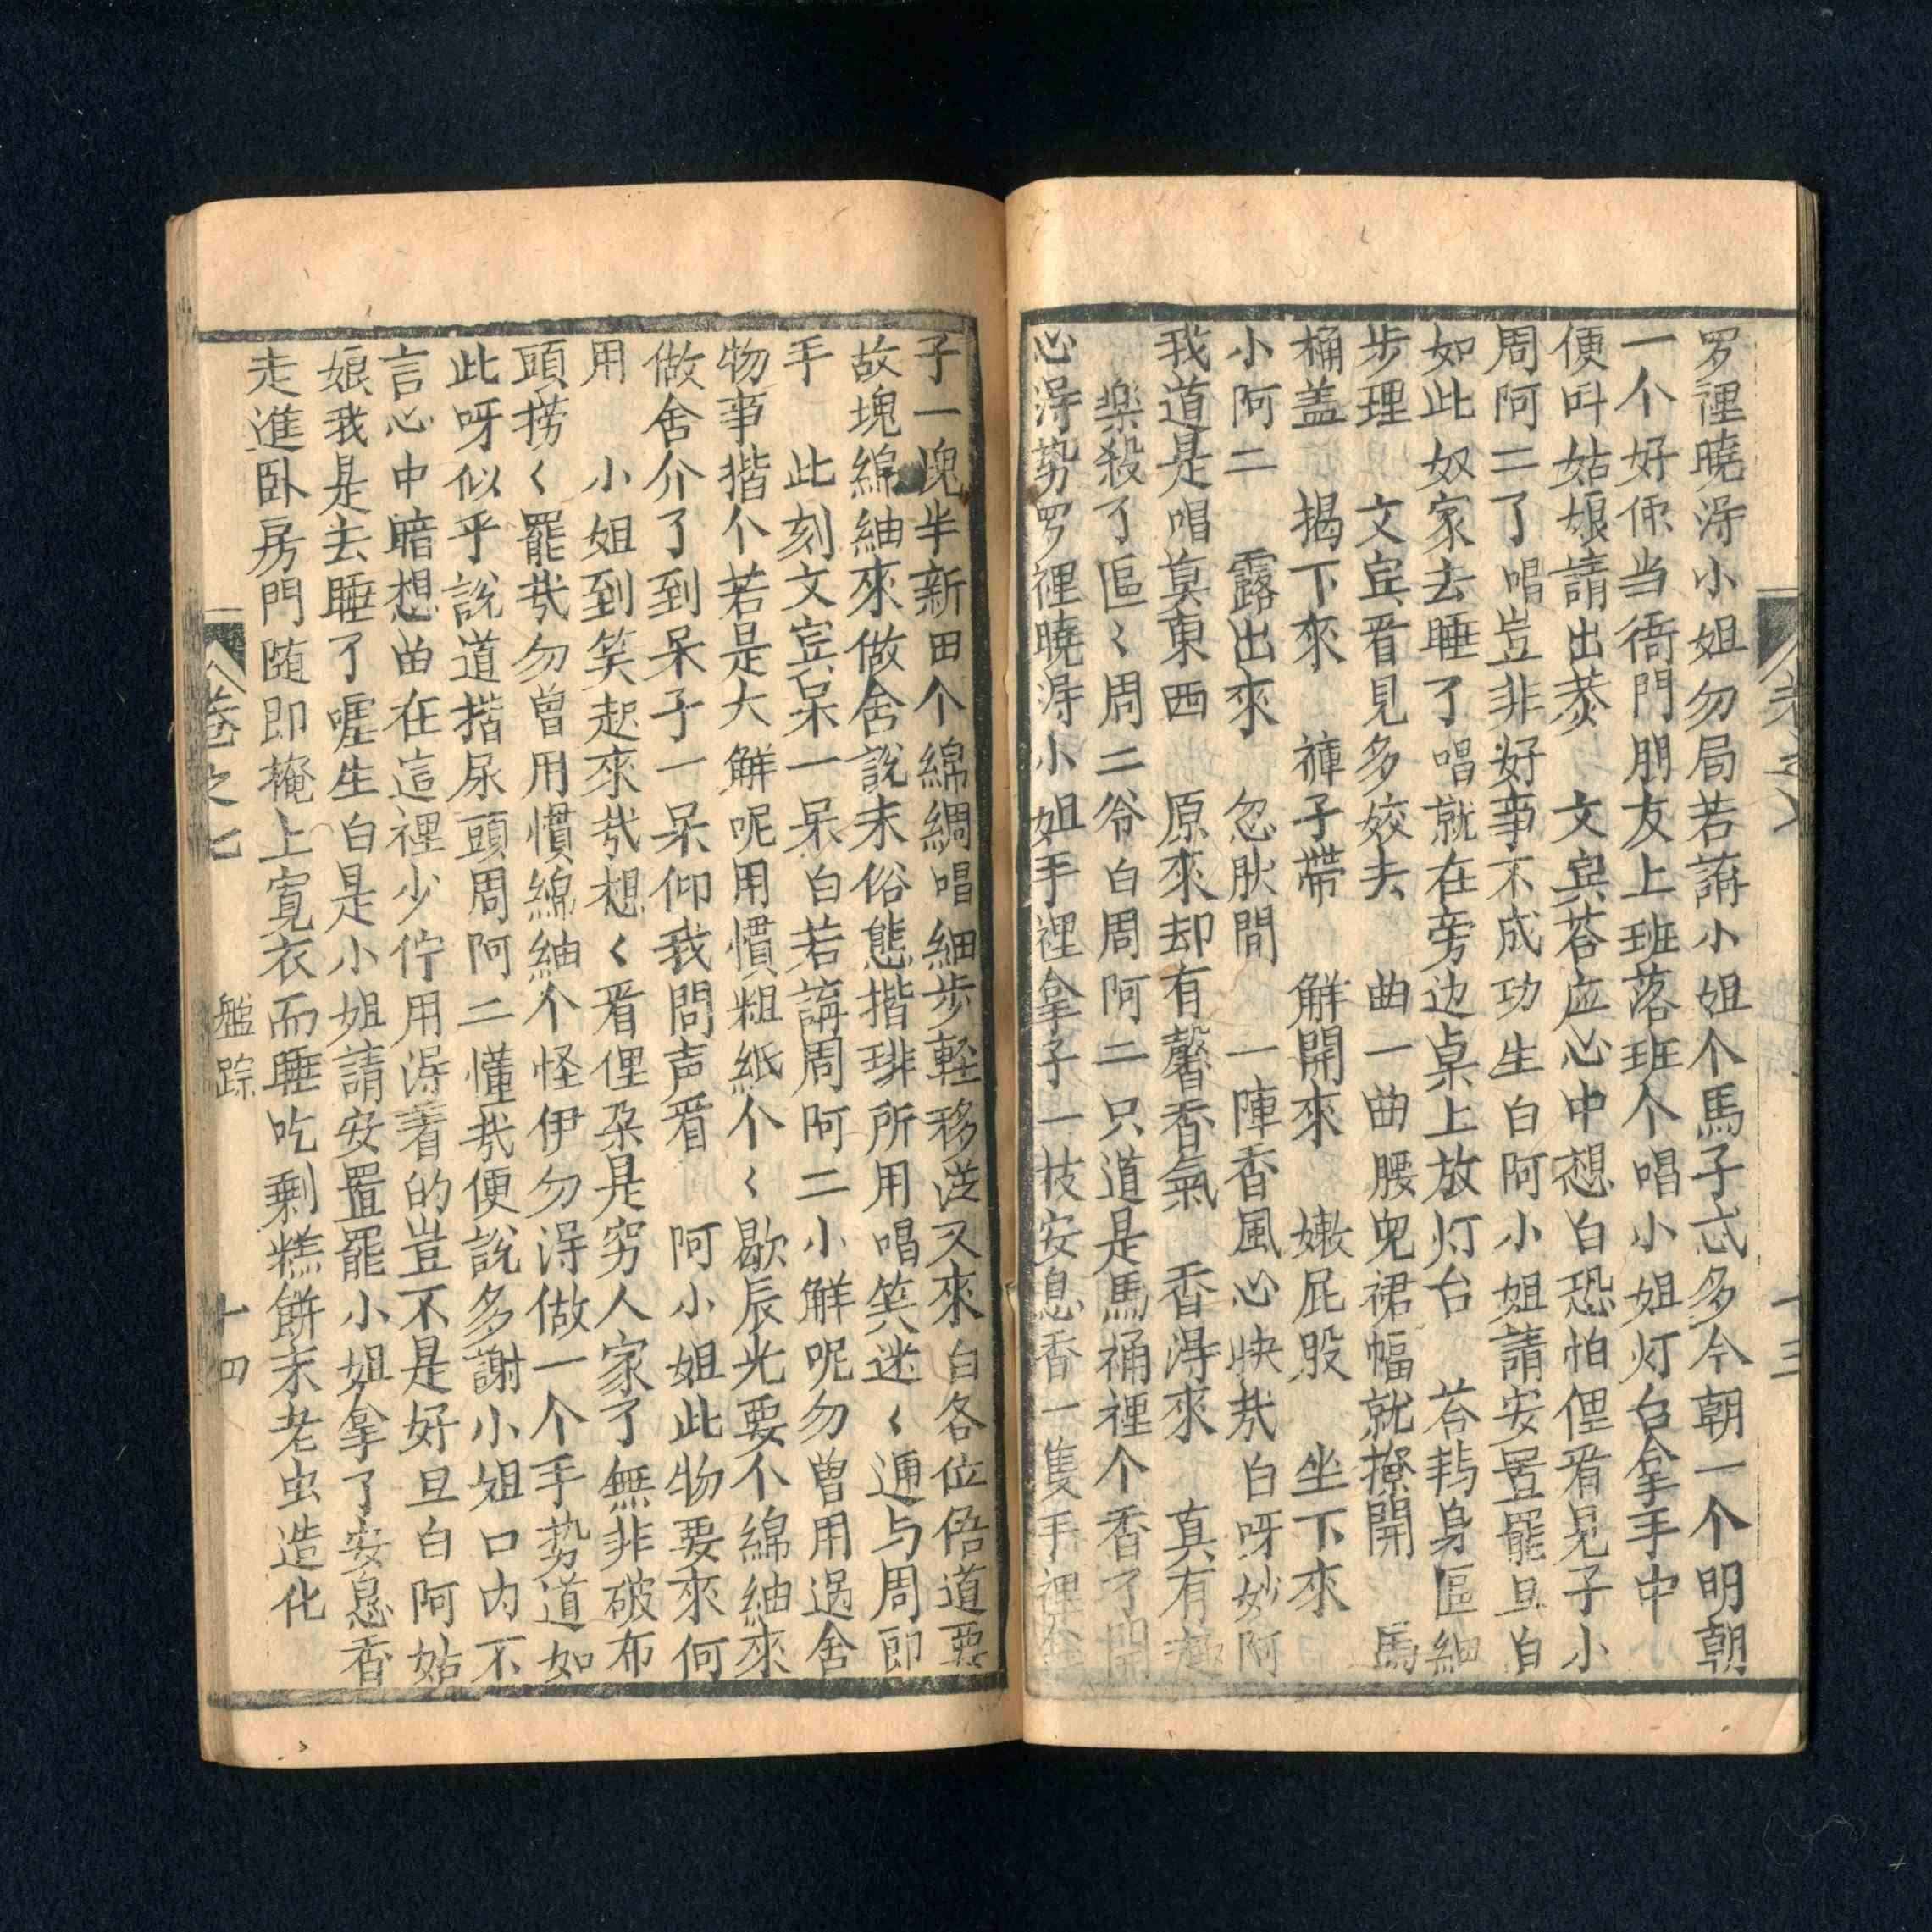 罗裡曉淂小姐勿局若講小姐个馬子忒多今朝一个明朝
一个好像当衙門朋友上班落班个唱小姐灯台拿手中
便呌姑娘請出恭　文宾荅应心中想白恐怕俚看見子小
周阿二了唱豈非好事不成功生白阿小姐請安置罷旦白
如此奴家去睡了唱就在旁边桌上放灯台　荅
身區細
步理　文宾看見多姣去　曲一曲腰兜裙幅就撩開　馬
桶盖　揭下來　褲子帶　解開來　嫩屁股　坐下來
小阿二　露出來　忽肰間　一陣香風心快哉白呀妙阿
我道是唱莫東西　原來却有馨香氣　香淂來　真有趣
楽殺了區〻周二爷白周阿二只道是馬桶裡个香了
心淂势罗裡曉淂小姐手裡拿子一枝安息香一隻手裡
卷之
十三
子一塊半新田个綿綢唱細步輕移
又來白各位
道要
故塊綿紬來做舍說末俗態揩
所用唱笑迷〻
与周郎
手　此刻文宾呆一呆白若講周阿二小觧呢勿曾用過舍
物事揩个若是大觧呢用慣粗紙个〻歇辰光要不綿紬來
做舍介了到呆子一呆仰我問声看　阿小姐此物要來何
用　小姐到笑起來哉想〻看俚朶是穷人家了無非破布
頭捞〻罷哉勿曾用慣綿紬个怪伊勿淂做一个手势道如
此呀似乎說道揩尿頭周阿二懂哉便說多謝小姐口内不
言心中暗想曲在這裡少佇用淂着的豈不是好旦白阿姑
娘我是去睡了喔生白是小姐請安置罷小姐拿了安息香
走進卧房門随即掩上寬衣而睡吃剩糕餅末老虫造化
卷之七
艋踪
十四